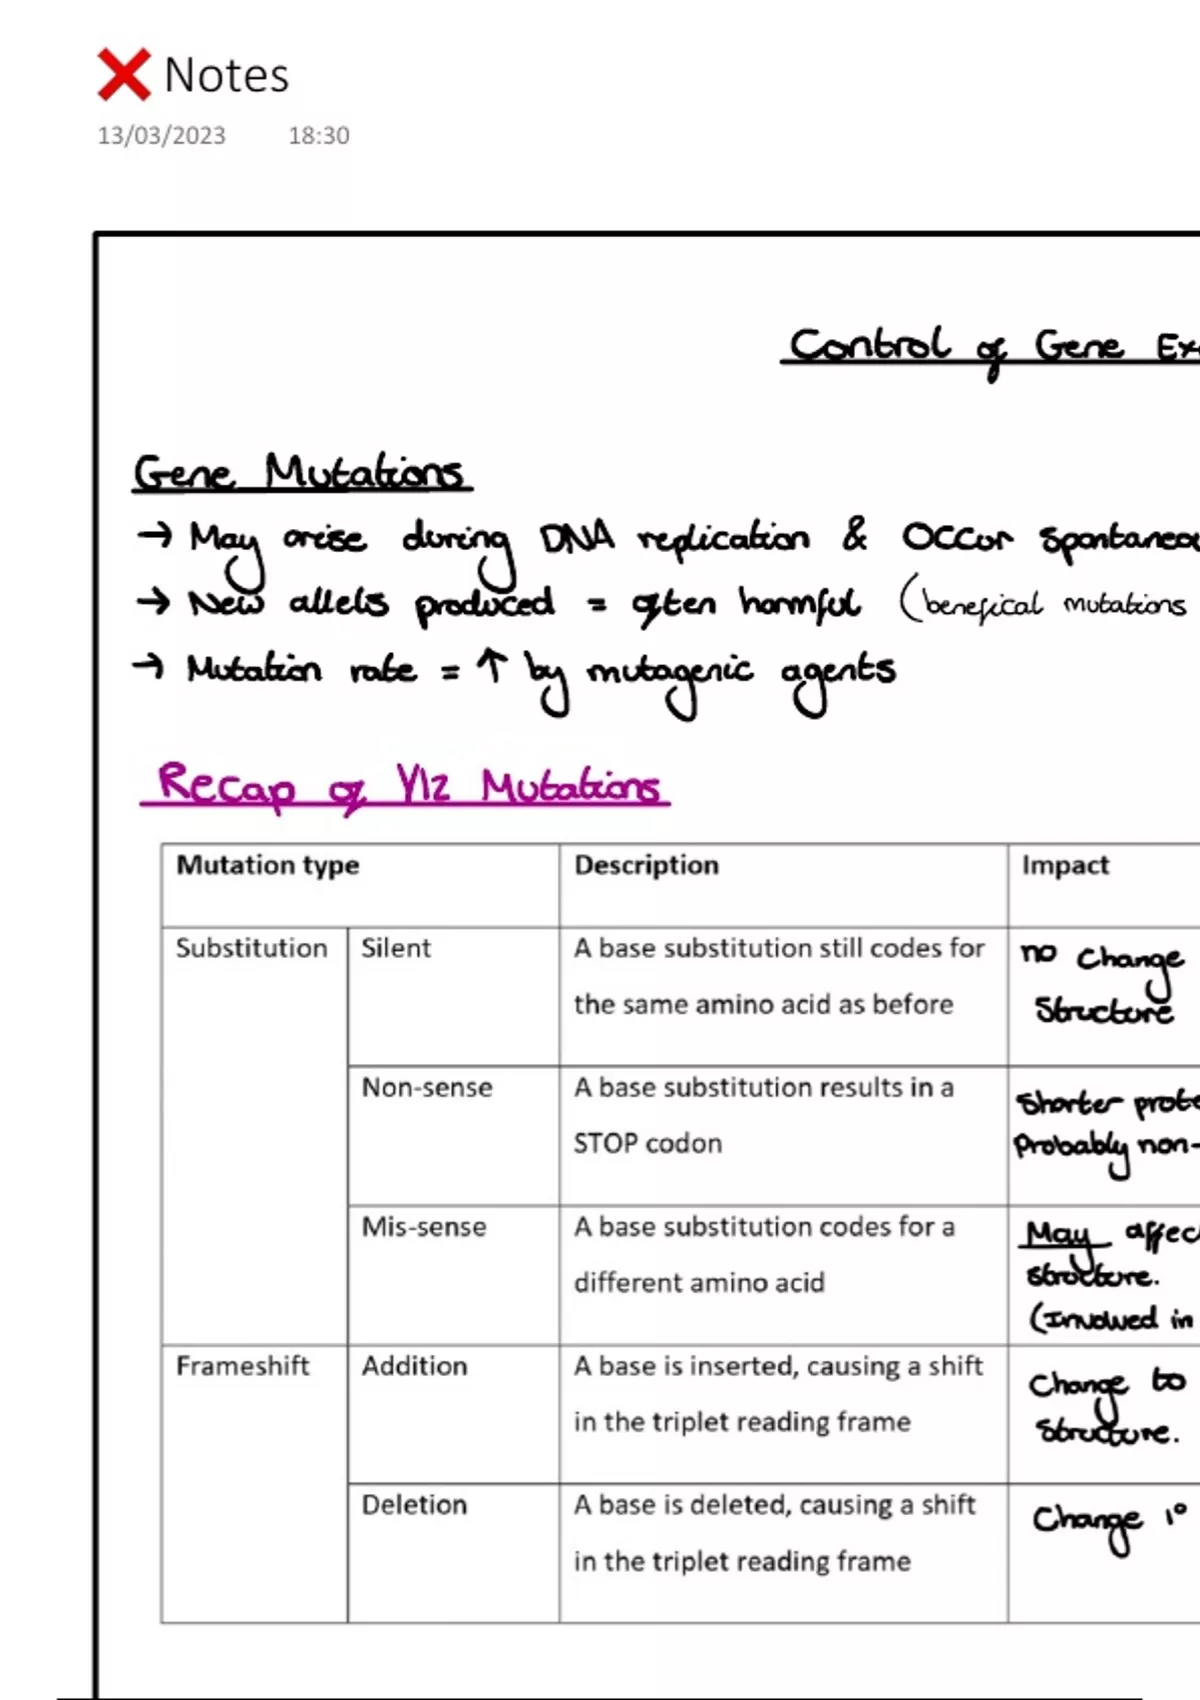 ❌ Notes
13/03/2023 18:30
Control of Gene
Gene Mutations
→ May arise during DNA replication & occur
→ New allels produced = often harmful (benefical mutations
→ Mutation rate = ↑ by mutagenic agents
Recap of Y12 Mutations
Mutation type Description Impact
Substitution Silent A base substitution still codes for no change
the same amino acid as before structure
Non-sense A base substitution results in a Shorter
STOP codon Probably non-
Mis-sense A base substitution codes for a May
different amino acid structure.
(Involved in
Frameshift Addition A base is inserted, causing a shift Change to
in the triplet reading frame structure.
Deletion A base is deleted, causing a shift Change 1°
in the triplet reading frame